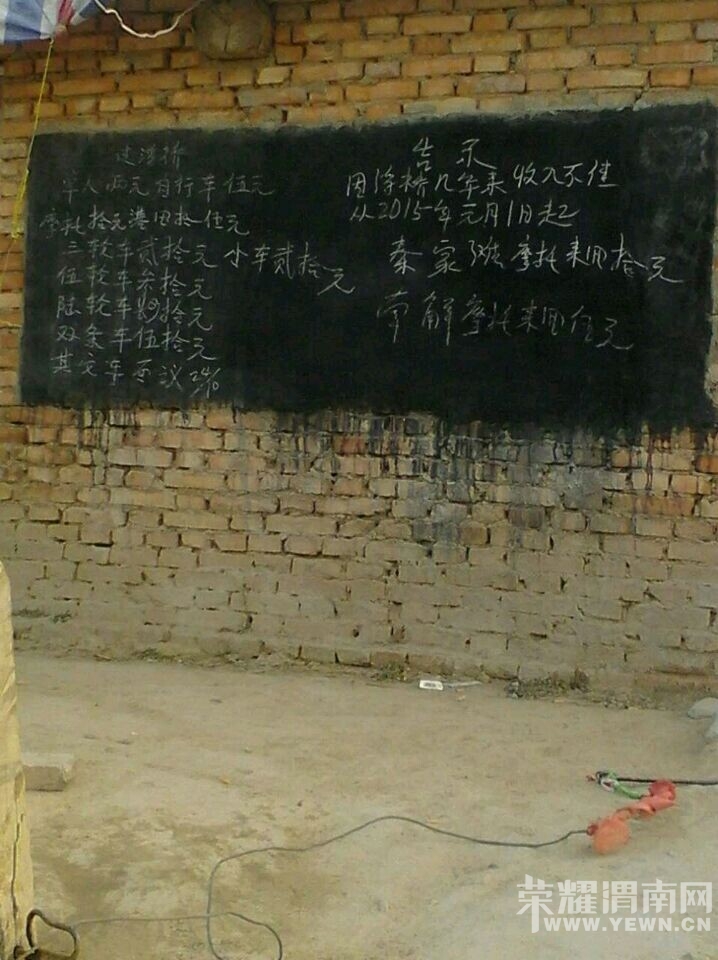 过浮桥
单人两元自行车伍元
摩托拾元港田拾伍元
三轮车贰拾元小车贰拾元
伍轮车叁拾元
陆轮车拾元
双条车伍拾元
其它车面议
告示
因浮桥几年来收入不佳
从2015年元月1日起
秦家滩摩托来回拾元
摩托来回伍元
荣耀渭南网
WWW.YEWN.CN